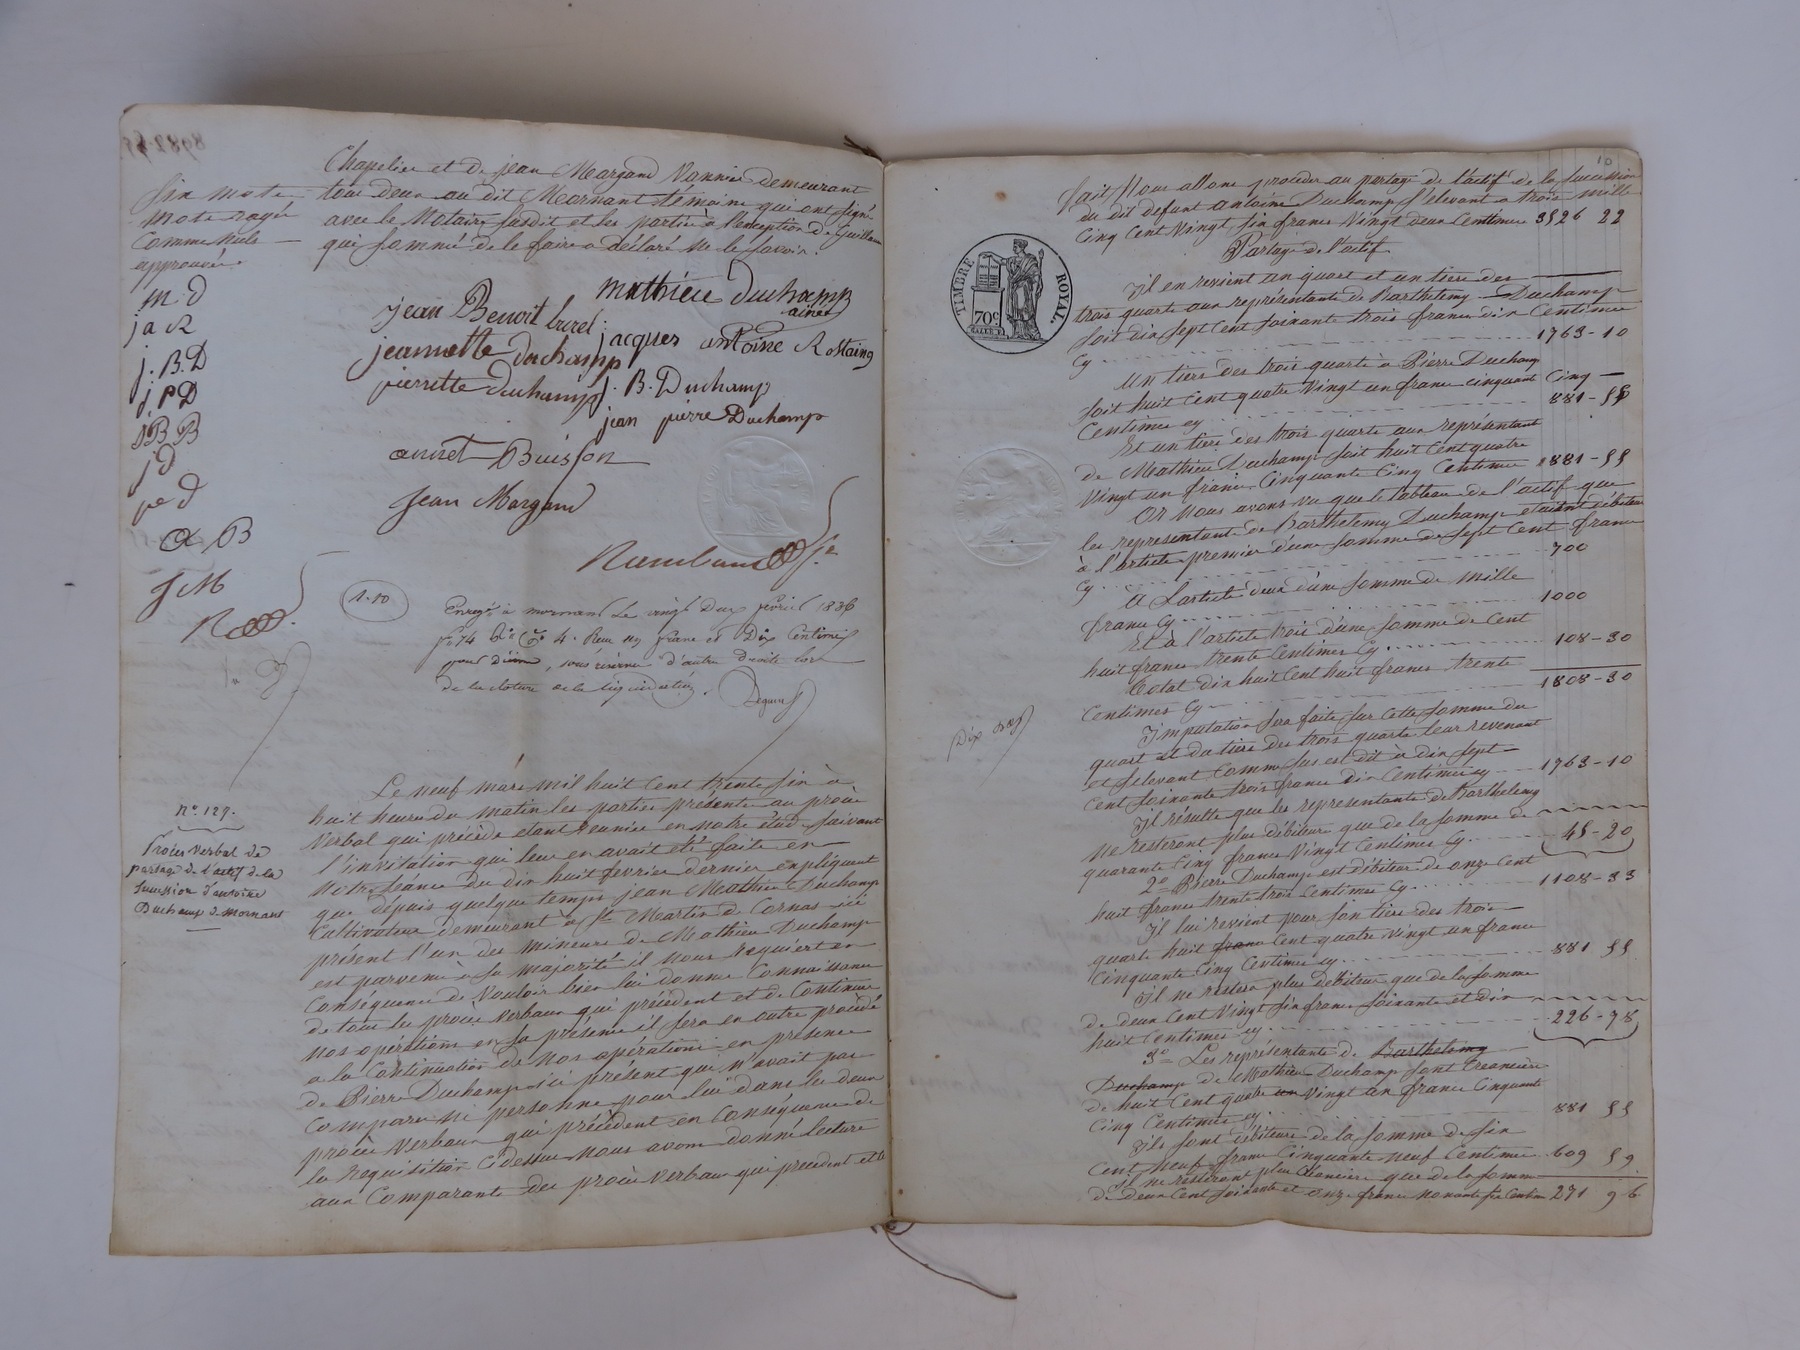 Chapelier et de jean Margand Vannier demeurant
tous deux au dit Mornant témoins qui ont signé
avec le Notaire susdit et les parties à l'exception de Guillaume
qui sommé de le faire a déclaré ne le savoir.
Six mots
mots rayés
Comme nuls
approuvés.
m. d
j a R
j. B. D
j P D
J B B
j D
pe d
a B
J M
mathieu duchamp
ainé
jean Benoit burel
jacques antoine Rostaing
jeannette duchamp
pierrette duchamp
J. B. Duchamp
jean pierre Duchamp
annet Buisson
Jean Margand
1-10
Enregé à mornant le vingt deux février 1836
fo 74 Vo Co 4. Reçu un franc et Dix Centimes
pour dixième, sous réserve d'autres droits lors
de la cloture de la liquidation.
Le neuf mars mil huit cent trente six à
huit heures du matin les parties présentes au procès
verbal qui précède étant réunies en notre étude suivant
l'invitation qui leur en avait été faite en
notre séance du dix huit fevrier dernier expliquent
que depuis quelque temps jean Mathieu Duchamp
Cultivateur demeurant à St Martin de Cornas ici
présent l'un des mineurs de Mathieu Duchamp
est parvenu à sa majorité il nous requiert en
Conséquence de vouloir bien lui donner Connaissance
de tous les procès verbaux qui précèdent et de Continuer
nos opérations en sa présence il sera en outre procédé
a la continuation de nos opérations en présence
de Pierre Duchamp ici présent qui n'avait pas
Comparu ni personne pour lui dans les deux
procès verbaux qui précèdent en Conséquence de
la requisition cidessus nous avons donné lecture
aux Comparants des procès verbaux qui precedent et le
No 129.
Procès Verbal de
partage de l'actif de la
succession d'antoine
Duchamp de Mornant
10
fait Nous allons proceder au partage de l'actif de la succession
du dit defunt antoine Duchamp s'élevant a trois mille
Cinq Cent Vingt six francs Vingt deux Centimes 3526 22
Partage de l'actif
TIMBRE ROYAL.
70c
Il en revient un quart et un tiers des
trois quarts aux représentants de Barthelemy Duchamp
soit dix sept cent soixante trois francs dix Centimes
Cy 1763-10
Un tiers des trois quarts à Pierre Duchamp
soit huit cent quatre Vingt un francs cinquante Cinq
Centimes cy 881-55
Et un tiers des trois quarts aux représentants
de Mathieu Duchamp soit huit Cent quatre
Vingt un francs Cinquante Cinq Centimes 881-55
Or Nous avons vu que le tableau de l'actif que
les representants de Barthelemy Duchamp etaient débiteurs
à l'article premier d'une somme de sept Cent francs
Cy 700
A L'article deux d'une somme de mille
francs Cy 1000
Et à l'article trois d'une somme de Cent
huit francs trente Centimes Cy 108-30
Total dix huit Cent huit francs trente
Centimes Cy 1808-30
Imputation sera faite sur cette somme du
quart et du tiers des trois quarts leur revenant
et s'elevant Comme sus est dit à dix sept
Cent soixante trois francs dix Centimes cy 1763-10
Il résulte que les representants de Barthelemy
ne resteront plus débiteurs que de la somme de
quarante Cinq francs Vingt Centimes Cy 45-20
2o Pierre Duchamp est débiteur de onze Cent
huit francs trente trois Centimes Cy 1108-33
Il lui revient pour son tiers des trois
quarts huit franc Cent quatre Vingt un francs
Cinquante Cinq Centimes cy 881 55
Il ne restera plus débiteur que de la somme
de deux Cent Vingt six francs soixante et dix
huit Centimes cy 226-78
3o Les représentants de Barthelemy
Duchamp de Mathieu Duchamp sont Creanciers
de huit Cent quatre un Vingt un francs Cinquante
Cinq Centimes cy 881 55
Ils sont débiteurs de la somme de six
Cent neuf francs Cinquante neuf Centimes 609 59
Il ne resteront plus Créanciers que de la somme
de deux Cent soixante et onze francs nonante six Centimes 271 96